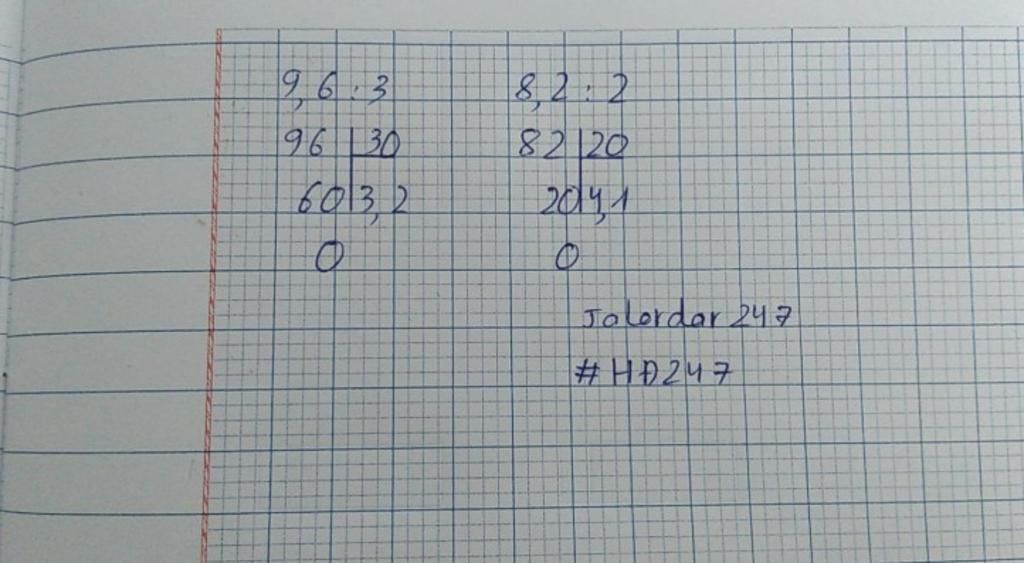 9,6 : 3
96 | 30
60 | 3,2
0
8,2 : 2
82 | 20
20 | 4,1
0
Jalordar 247
#HĐ247